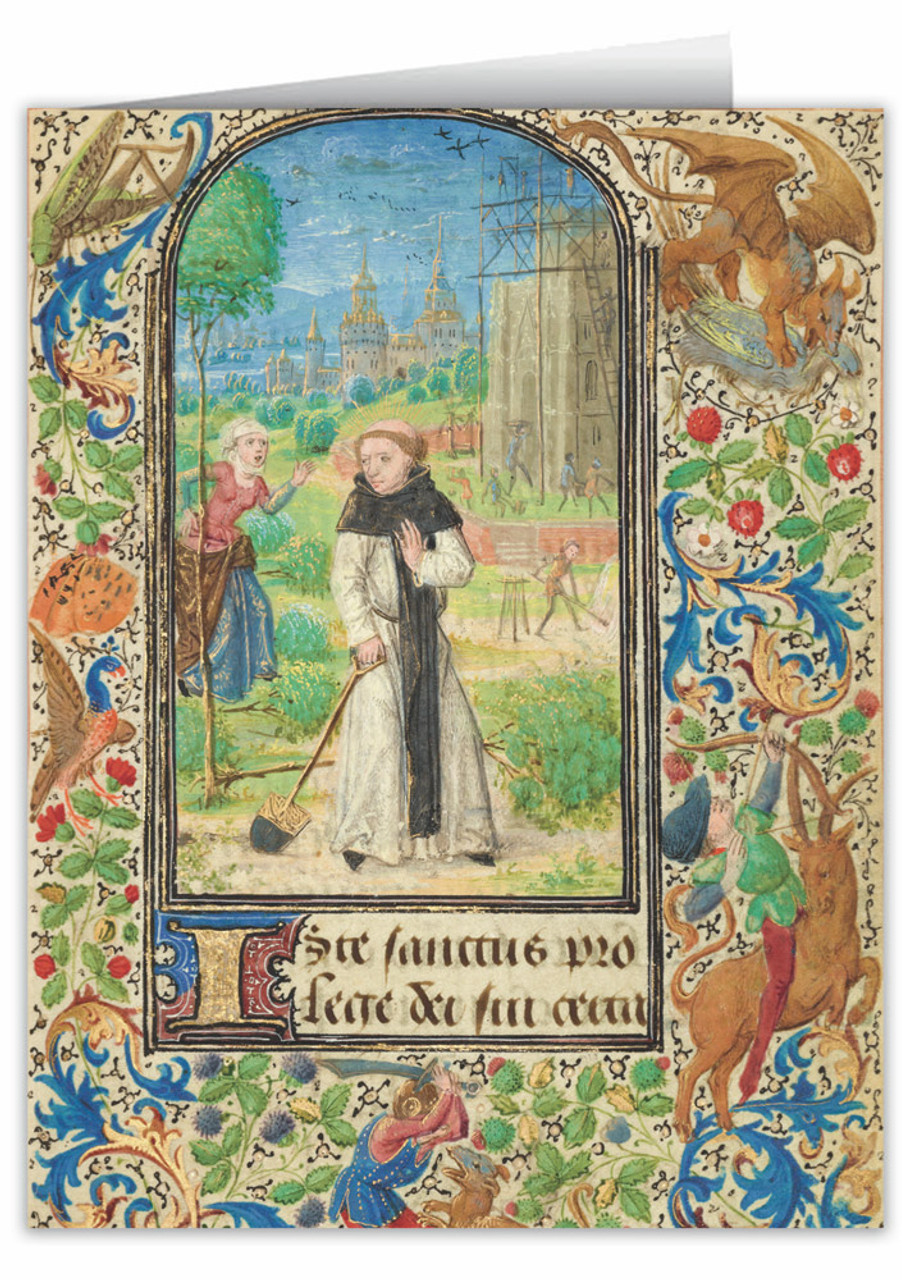 ISte sanctus pro
lege dei sui certa